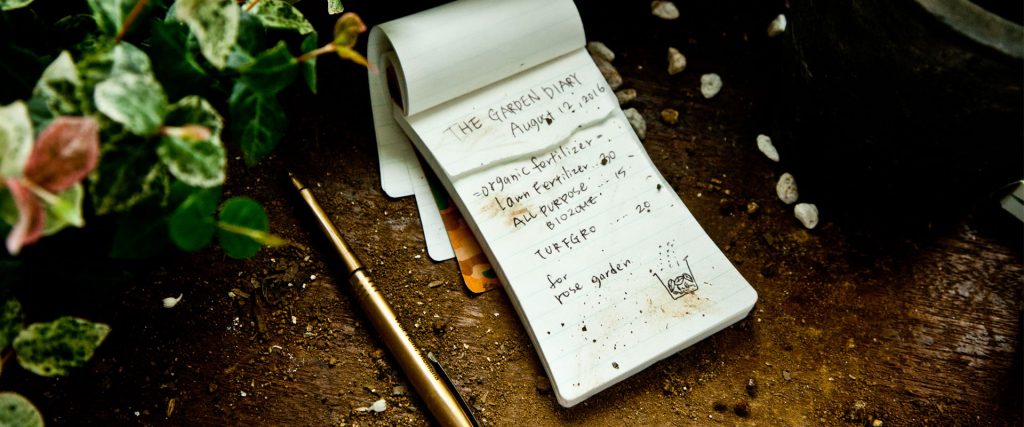 THE GARDEN DIARY
August 12, 2016
=organic fertilizer..
lawn Fertilizer... 30
ALL PURPOSE ... 15
BIOZOME.
TURFGRO ... 20
for
rose garden